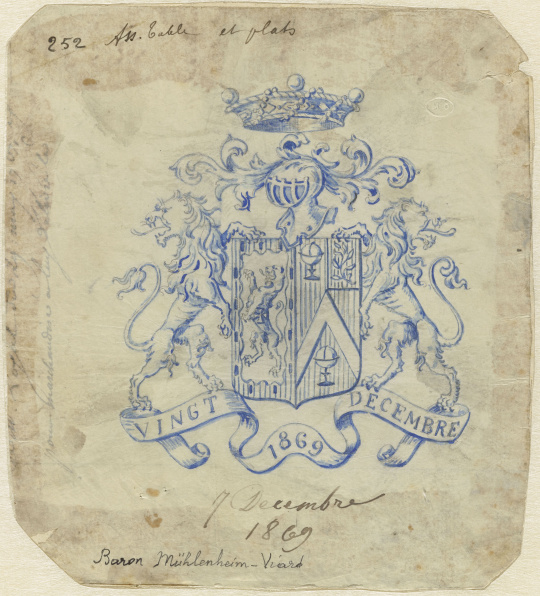 252 Ass. table et plats
VINGT DECEMBRE
1869
7 Decembre
1869
Baron Mühlenheim-Viard